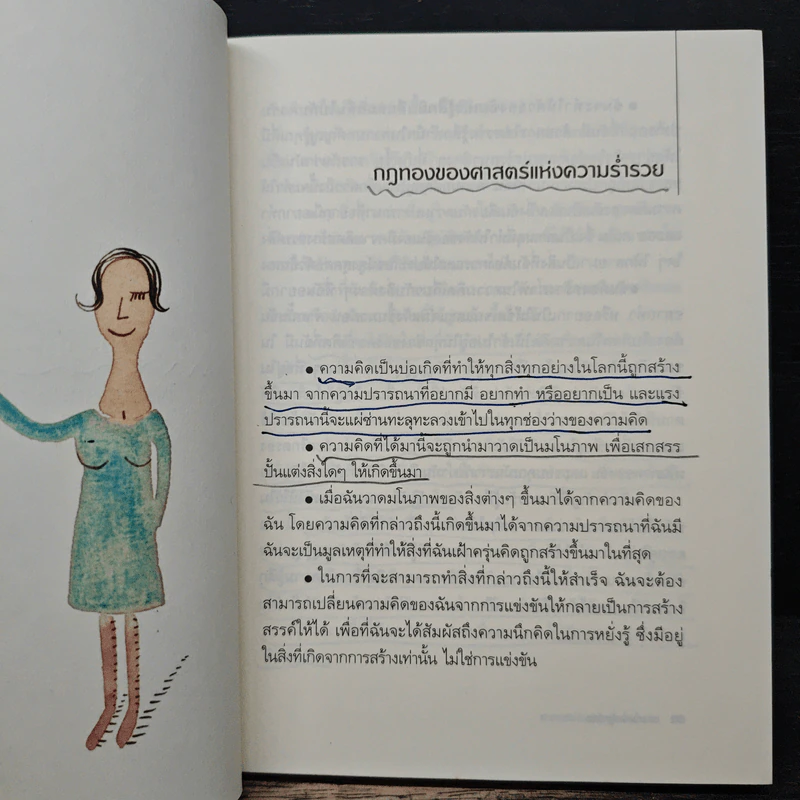 กฎทองของศาสตร์แห่งความร่ำรวย
● ความคิดเป็นบ่อเกิดที่ทำให้ทุกสิ่งทุกอย่างในโลกนี้ถูกสร้าง
ขึ้นมา จากความปรารถนาที่อยากมี อยากทำ หรืออยากเป็น และแรง
ปรารถนานี้จะแผ่ซ่านทะลุทะลวงเข้าไปในทุกช่องว่างของความคิด
● ความคิดที่ได้มานี้จะถูกนำมาวาดเป็นมโนภาพ เพื่อเสกสรร
ปั้นแต่งสิ่งใดๆ ให้เกิดขึ้นมา
● เมื่อฉันวาดมโนภาพของสิ่งต่างๆ ขึ้นมาได้จากความคิดของ
ฉัน โดยความคิดที่กล่าวถึงนี้เกิดขึ้นมาได้จากความปรารถนาที่ฉันมี
ฉันจะเป็นมูลเหตุที่ทำให้สิ่งที่ฉันเฝ้าครุ่นคิดถูกสร้างขึ้นมาในที่สุด
● ในการที่จะสามารถทำสิ่งที่กล่าวถึงนี้ให้สำเร็จ ฉันจะต้อง
สามารถเปลี่ยนความคิดของฉันจากการแข่งขันให้กลายเป็นการสร้าง
สรรค์ให้ได้ เพื่อที่ฉันจะได้สัมผัสถึงความนึกคิดในการหยั่งรู้ ซึ่งมีอยู่
ในสิ่งที่เกิดจากการสร้างเท่านั้น ไม่ใช่การแข่งขัน